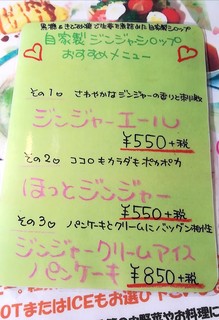 自家製 ジンジャシロップ
おすすめメニュー
その1♡ さわやかなジンジャーの香りと刺激
ジンジャーエール
¥550+税
その2♡ ココロもカラダもポカポカ
ほっとジンジャー
¥550+税
その3♡ パンケーキとクリームにバツグン相性
ジンジャークリームアイス
パンケーキ ¥850+税
OTまたはICEもお選び
内野菜やお料理に